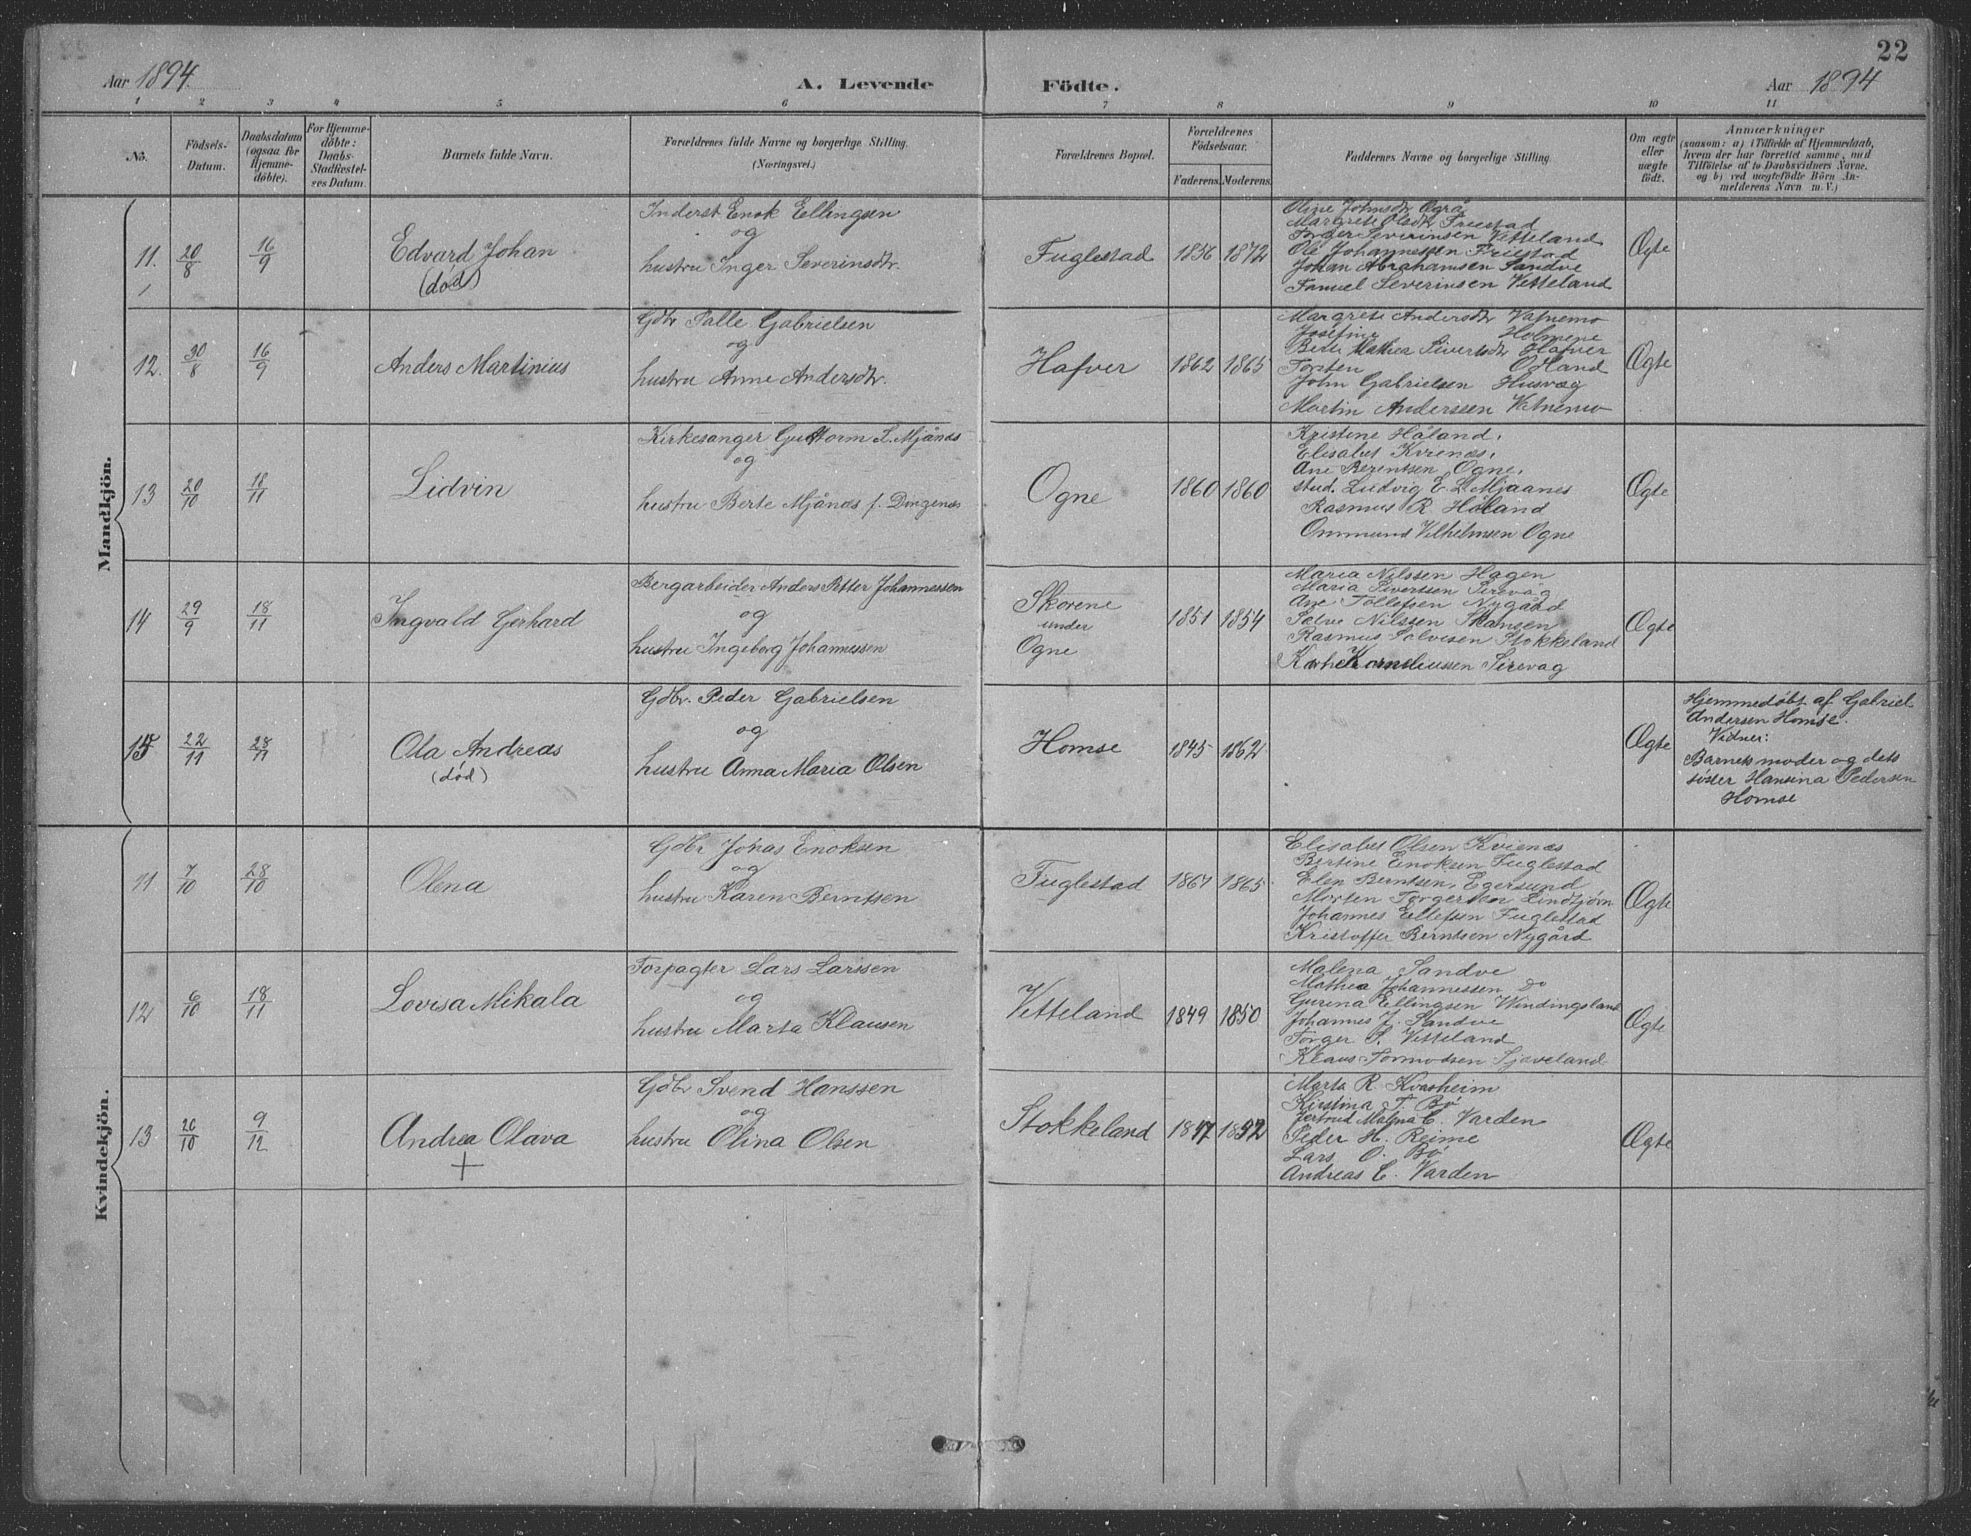 22
Aar 1894.
A. Levende Födte.
Aar 1894
1 2 3 4 5 6 7 8 9 10 11
No.
Födsels-
Datum.
Daabsdatum
(ogsaa for
Hjemme-
döbte).
For Hjemme-
döbte:
Daabs-
Stadfæstel-
ses Datum.
Barnets fulde Navn.
Forældrenes fulde Navne og borgerlige Stilling.
(Næringsvei.)
Forældrenes Bopæl.
Forældrenes
Födselsaar.
Faderens. Moderens.
Faddernes Navne og borgerlige Stilling.
Om ægte
eller
uægte
födt.
Anmærkninger
(saasom: a) i Tilfælde af Hjemmedaab,
hvem der har forrettet samme, med
Tilföielse af to Daabsvidners Navne.
og b) ved uægtefödte Börn An-
melderens Navn m. V.)
Mandkjön.
11. 20/8 16/9
Edvard Johan
(død)
Inderst Enok Ellingsen
og
hustru Inger Severinsdtr.
Fuglestad 1856 1872
Oline Johnsdtr Ogrå
Margrete Olsdtr Friestad
Torger Severinsen Vetteland
Ole Johannessen Friestad
Johan Abrahamsen Sandve
Samuel Severinsen Vetteland
Ægte
12. 30/8 16/9
Anders Martinius
Gdbr Palle Gabrielsen
og
hustru Anne Andersdtr.
Hafver 1862 1865
Margrete Andersdtr Vatnemo
Josefine Holmene
Berte Mathea Sivertsdtr Hafver
Torsten Odland
John Gabrielsen Husvæg
Martin Anderssen Vatnemo
Ægte
13 20/10 18/11
Lidvin
Kirkesanger Guttorm L. Mjånes
og
hustru Berte Mjånes f.
Ogne 1860 1860
Kristine Håland,
Elisabet Kvienæs,
Ane Berentsen Ogne,
stud. Ludvig E. L. Mjaanes
Rasmus R Håland
Ommund Vilhelmsen Ogne
Ægte
14 29/9 18/11
Ingvald Gerhard
Bergarbeider Anders Petter Johannessen
og
hustru Ingeborg Johannessen
Skorene
under
Ogne
1851 1854
Maria Nilssen Hagen
Maria Sivertsen Sirevåg
Ane Tollefsen Nygård
Salve Nilssen Skansen
Rasmus Salvesen Stokkeland
Korneliussen Sirevag
Ægte
15 22/11 28/11
Ola Andreas
(død)
Gdbr. Peder Gabrielsen
og
hustru Anna Maria Olsen
Homse 1845 1862
Ægte
Hjemmedøbt af Gabriel
Andersen Homse.
Vidner:
Barnets moder og dets
sister Hansina Pedersen
Homse
Kvindekjön.
11 7/10 28/10
Olena
Gdbr Jonas Enoksen
og
hustru Karen Berntsen
Fuglestad 1867 1865
Elisabet Olsen Kvienæs
Bertine Enoksen Fuglestad
Elen Berntsen, Egersund
Morten Torgersen Lindtjørn
Johannes Ellefsen Fuglestad
Kristoffer Berntsen Nygård
Ægte
12 6/10 18/11
Lovisa Mikala
Forpagter Lars Larssen
og
hustru Marta Klausen
Vetteland 1849 1850
Malena Sandve
Mathea Johannessen Do
Gurina Ellingsen Windingsland
Johannes J. Sandve
Torger S. Vetteland
Klaus Tormodsen Sjaveland
Ægte
13 20/10 9/12
Andrea Olava
+
Gdbr Svend Hanssen
og
hustru Olina Olsen
Stokkeland 1847 1852
Marta R. Kvasheim
Kirstina T. Bø
Gertrud Malena C. Varden
Peder H. Reime
Lars O. Bø
Andreas C. Varden
Ægte